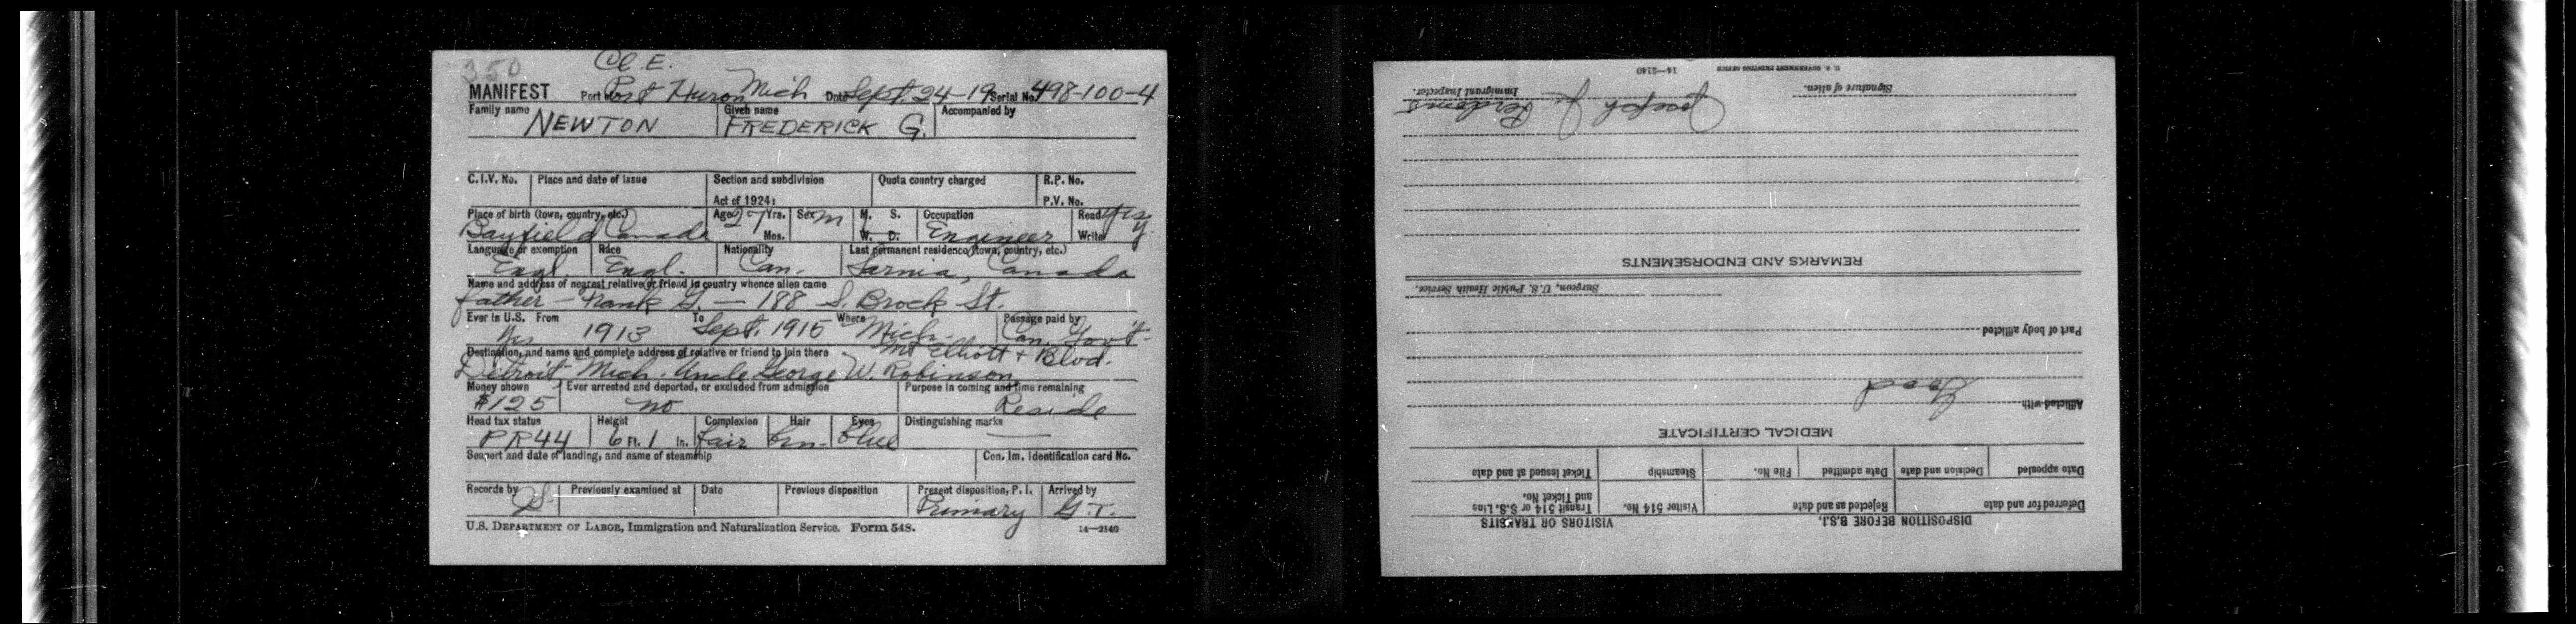 350
Cl. E.
MANIFEST Port Huron Mich Date Sept. 24-19 Serial No. 498-100-4
Family name NEWTON Given name FREDERICK G. Accompanied by
C.I.V. No. Place and date of issue Section and subdivision Quota country charged R.P. No.
Act of 1924: P.V. No.
Place of birth (town, country, etc.) Age 27 Yrs. Sex M M. S. Occupation Read Yes
Bayfield Canada Mos. W. D. Engineer Write Y
Language or exemption Race Nationality Last permanent residence (town, country, etc.)
Engl. Engl. Can. Sarnia, Canada
Name and address of nearest relative or friend in country whence alien came
father - Frank G. - 188 S. Brock St.
Ever in U.S. From To Where Passage paid by
Yes 1913 Sept. 1915 Mich. Can. Gov't.
Destination, and name and complete address of relative or friend to join there Mt Elliott + Blvd.
Detroit Mich. Uncle George W. Robinson
Money shown Ever arrested and deported, or excluded from admission Purpose in coming and time remaining
$125 no Reside
Head tax status Height Complexion Hair Eyes Distinguishing marks
PR44 6 Ft. 1 In. fair brn. blue —
Seaport and date of landing, and name of steamship Con. Im. Identification card No.
Records by Previously examined at Date Previous disposition Present disposition, P. I. Arrived by
Primary G.T.
U.S. DEPARTMENT OF LABOR, Immigration and Naturalization Service. Form 548. 14—2140
DISPOSITION BEFORE B.S.I. VISITORS OR TRANSITS
Deferred for and date Rejected as and date Visitor 514 No. Transit 514 or S.S. Line and Ticket No.
Date appealed Decision and date Date admitted File No. Steamship Ticket issued at and date
MEDICAL CERTIFICATE
Afflicted with Good
Part of body afflicted
Surgeon, U.S. Public Health Service.
REMARKS AND ENDORSEMENTS
Joseph J.
Signature of alien. Immigrant Inspector.
U. S. GOVERNMENT PRINTING OFFICE 14—2140